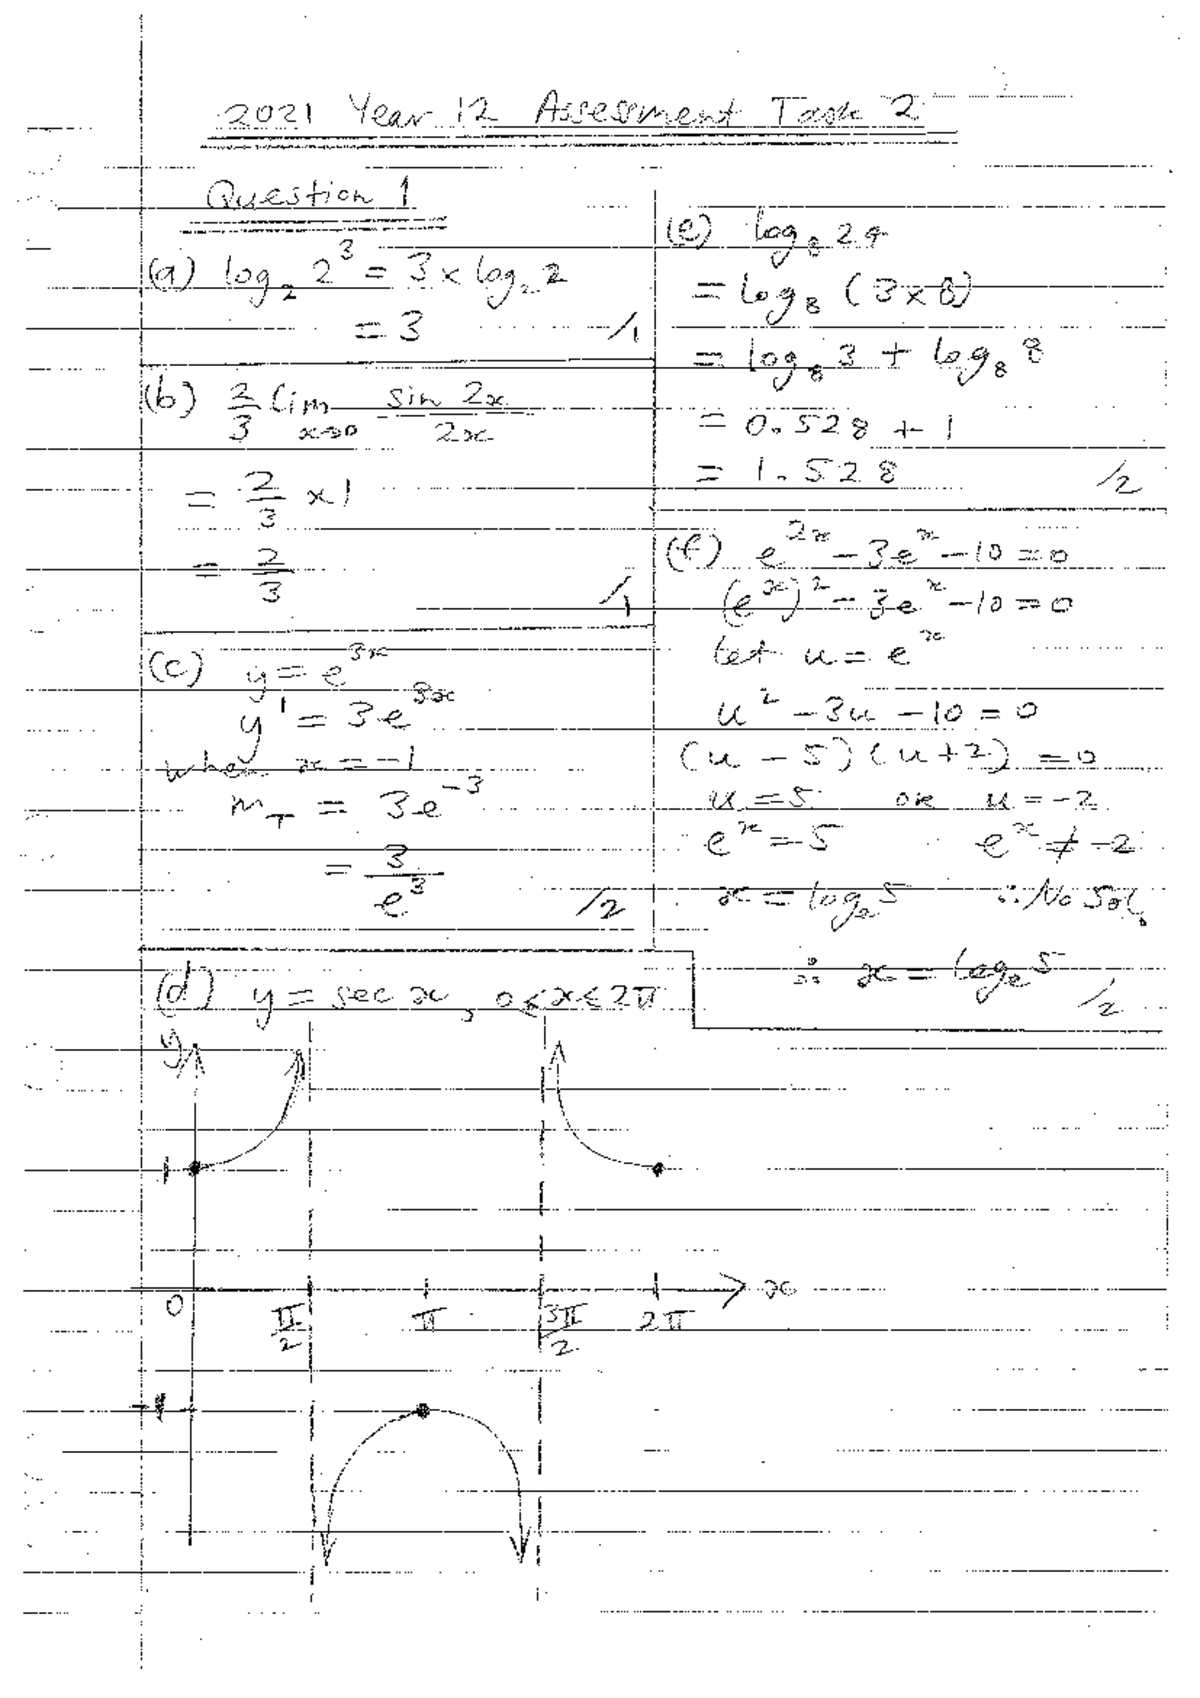 2021 Year 12 Assessment Task 2
Question 1
(a) log₂ 2³ = 3 × log₂ 2
= 3 /1
(b) 2/3 lim x→0 sin 2x / 2x
= 2/3 × 1
= 2/3 /1
(c) y = e^(3x)
y' = 3e^(3x)
when x = -1
m_T = 3e^(-3)
= 3/e³ /2
(d) y = sec x, 0 ≤ x ≤ 2π
y
1
0 π/2 π 3π/2 2π x
-1
(e) log₈ 24
= log₈ (3 × 8)
= log₈ 3 + log₈ 8
= 0.528 + 1
= 1.528 /2
(f) e^(2x) - 3e^x - 10 = 0
(e^x)² - 3e^x - 10 = 0
let u = e^x
u² - 3u - 10 = 0
(u - 5)(u + 2) = 0
u = 5 or u = -2
e^x = 5 e^x ≠ -2
x = logₑ5 ∴ No Sol.
∴ x = logₑ5 /2